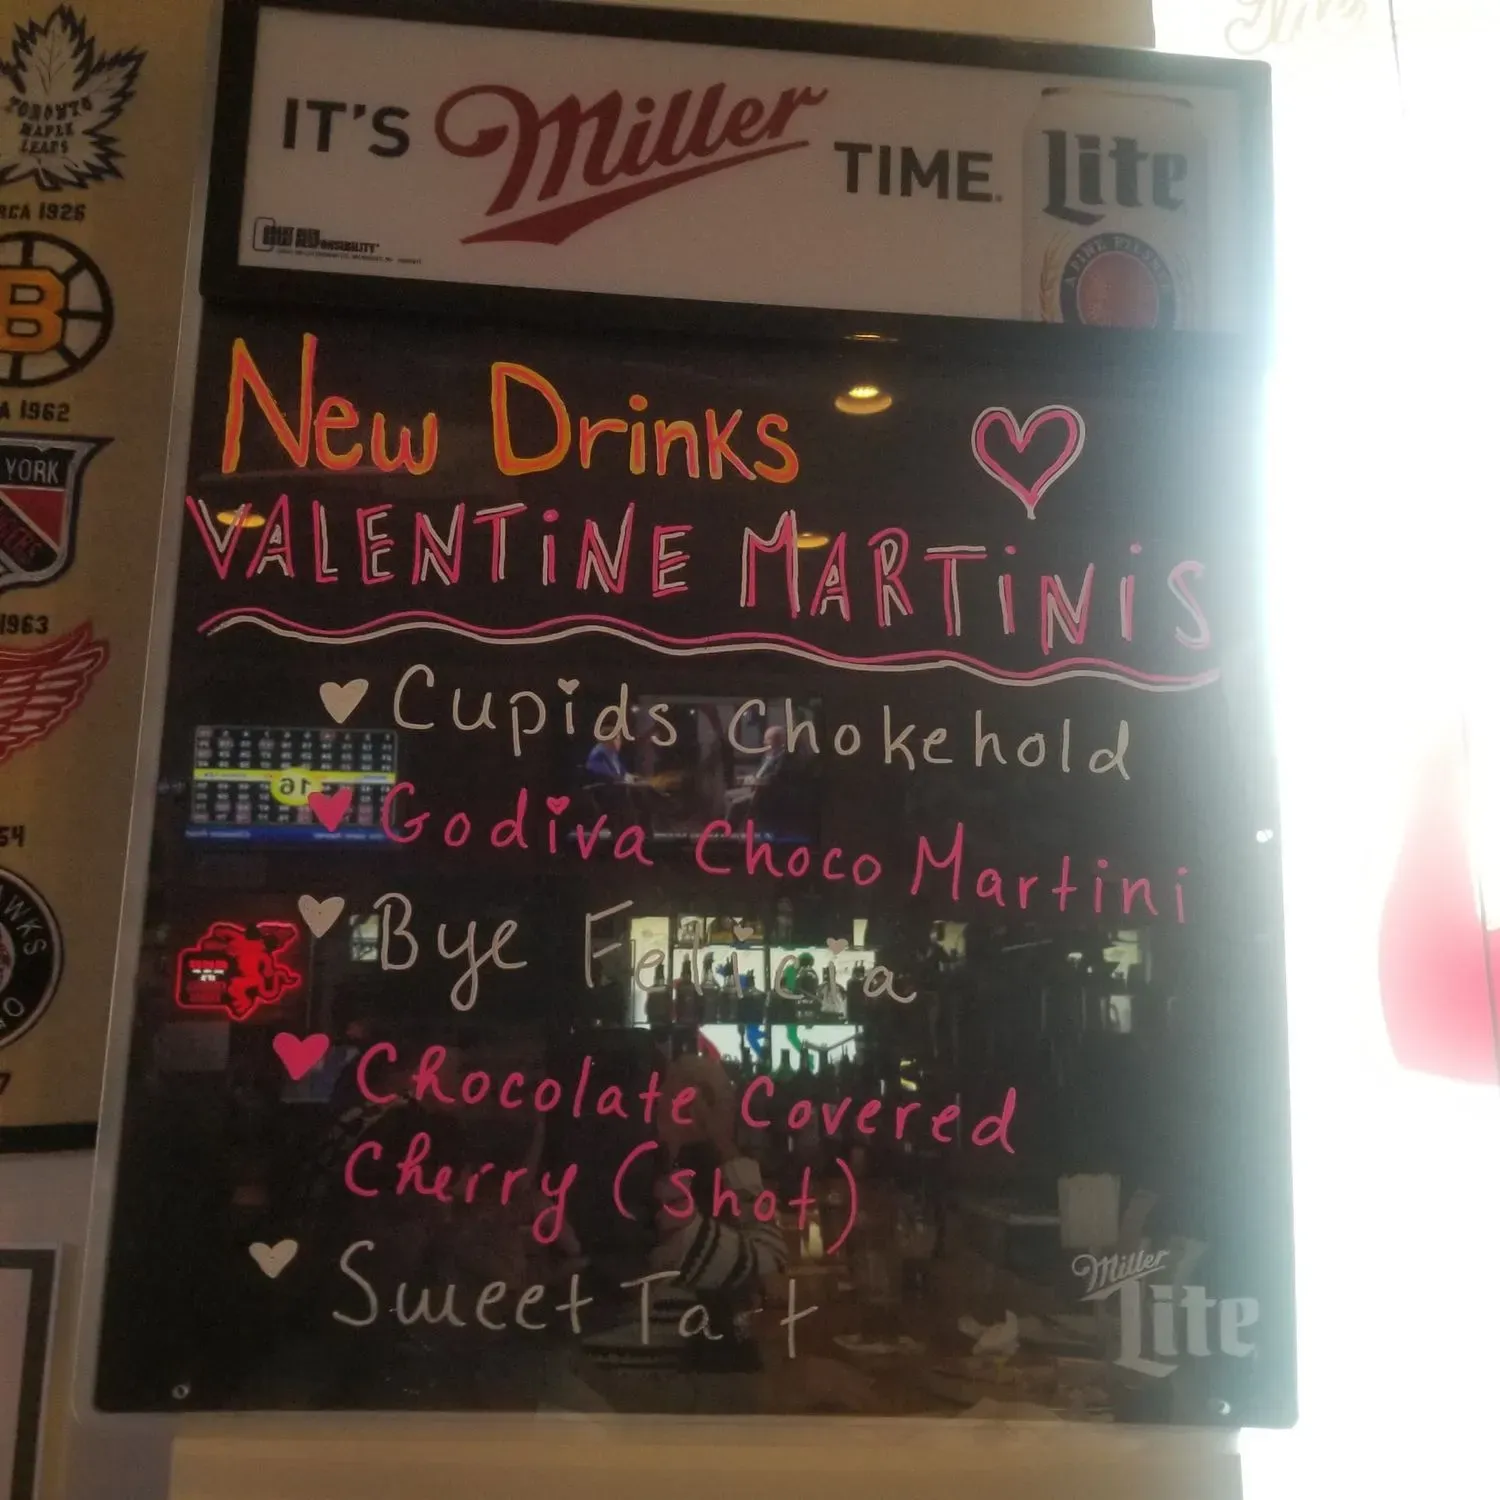 TORONTO
MAPLE
LEAFS
RCA 1926
B
A 1962
YORK
1963
54
WKS
O
7
IT'S Miller TIME.
Lite
A FINE PILSNER
GREAT BEER
GREAT RESPONSIBILITY
New Drinks
VALENTINE MARTINIS
Cupids Chokehold
Godiva Choco Martini
Bye Felicia
Chocolate Covered
Cherry (shot)
Sweet Ta t
Miller
Lite
16